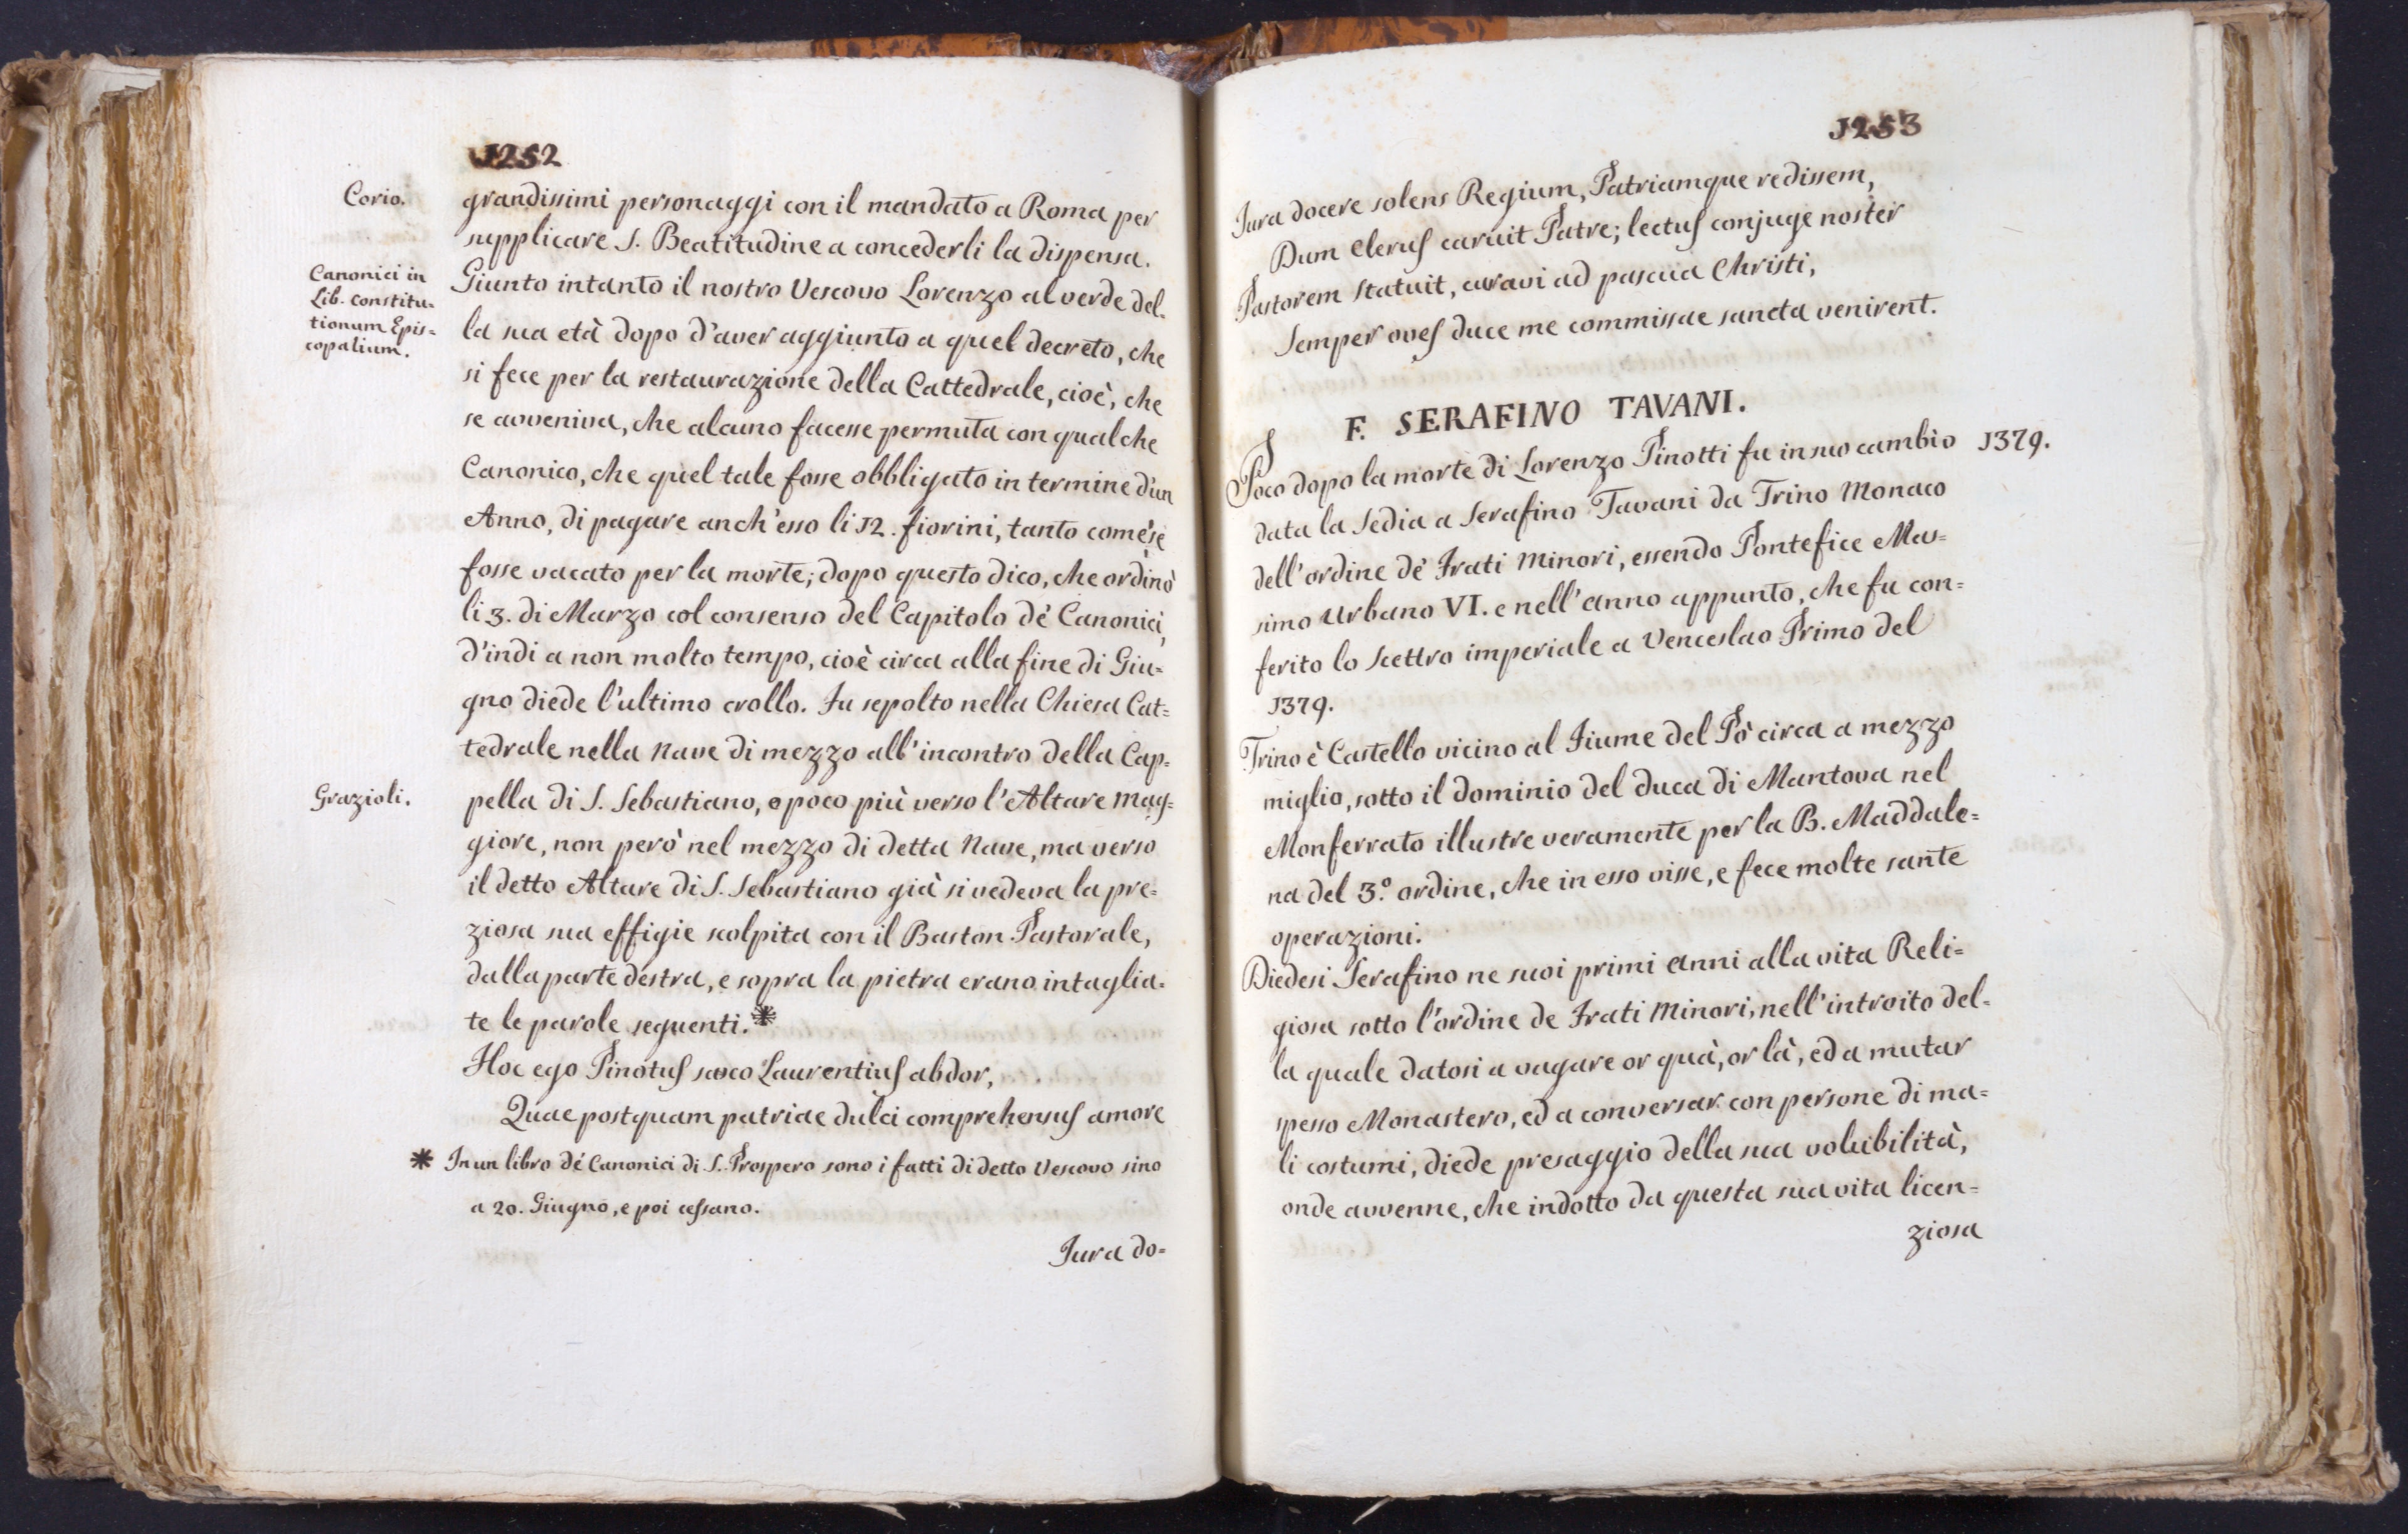 1252
Corio.
grandissimi personaggi con il mandato a Roma per
supplicare S. Beatitudine a concederli la dispensa.
Canonici in
Lib. constitu-
tionum Epis=
copalium.
Giunto intanto il nostro Vescovo Lorenzo al verde del-
la sua età dopo d'aver aggiunto a quel decreto, che
si fece per la restaurazione della Cattedrale, cioè, che
se avveniva, che alcuno facesse permuta con qualche
Canonico, che quel tale fosse obbligato in termine d'un
Anno, di pagare anch'esso li 12. fiorini, tanto com'e se
fosse vacato per la morte; dopo questo dico, che ordinò
li 3. di Marzo col consenso del Capitolo dè Canonici,
d'indi a non molto tempo, cioè circa alla fine di Giu=
gno diede l'ultimo crollo. Fu sepolto nella Chiesa Cat=
tedrale nella Nave di mezzo all'incontro della Cap=
Grazioli.
pella di S. Sebastiano, e poco più verso l'Altare Mag=
giore, non però nel mezzo di detta Nave, ma verso
il detto Altare di S. Sebastiano già si vedeva la pre=
ziosa sua effigie scolpita con il Baston Pastorale,
dalla parte destra, e sopra la pietra erano intaglia-
te le parole seguenti.*
Hoc ego Pinotus saxo Laurentius abdor,
Quae postquam patriae dulci comprehensus amore
* In un libro dè Canonici di S. Prospero sono i fatti di detto Vescovo sino
a 20. Giugno, e poi cessano.
Jura do=
1253
Jura docere solens Regium, Patriamque redissem,
Dum Clerus caruit Patre; lectus conjuge noster
Pastorem statuit, curavi ad pascua Christi,
Semper oves duce me commissae sancta venirent.
F. SERAFINO TAVANI.
Poco dopo la morte di Lorenzo Pinotti fu in suo cambio 1379.
data la Sedia a Serafino Tavani da Trino Monaco
dell'ordine dè Frati Minori, essendo Pontefice Mas=
simo Urbano VI. e nell'anno appunto, che fu con=
ferito lo scettro imperiale a Venceslao Primo del
1379.
Trino è Castello vicino al Fiume del Pò circa a mezzo
miglio, sotto il dominio del duca di Mantova nel
Monferrato illustre veramente per la B. Maddale=
na del 3.º ordine, che in esso visse, e fece molte sante
operazioni.
Diedesi Serafino ne suoi primi anni alla vita Reli=
giosa sotto l'ordine de Frati Minori, nell'introito del-
la quale datosi a vagare or quà, or là, ed a mutar
spesso Monastero, ed a conversar con persone di ma=
li costumi, diede presaggio della sua volubilità,
onde avvenne, che indotto da questa sua vita licen=
ziosa